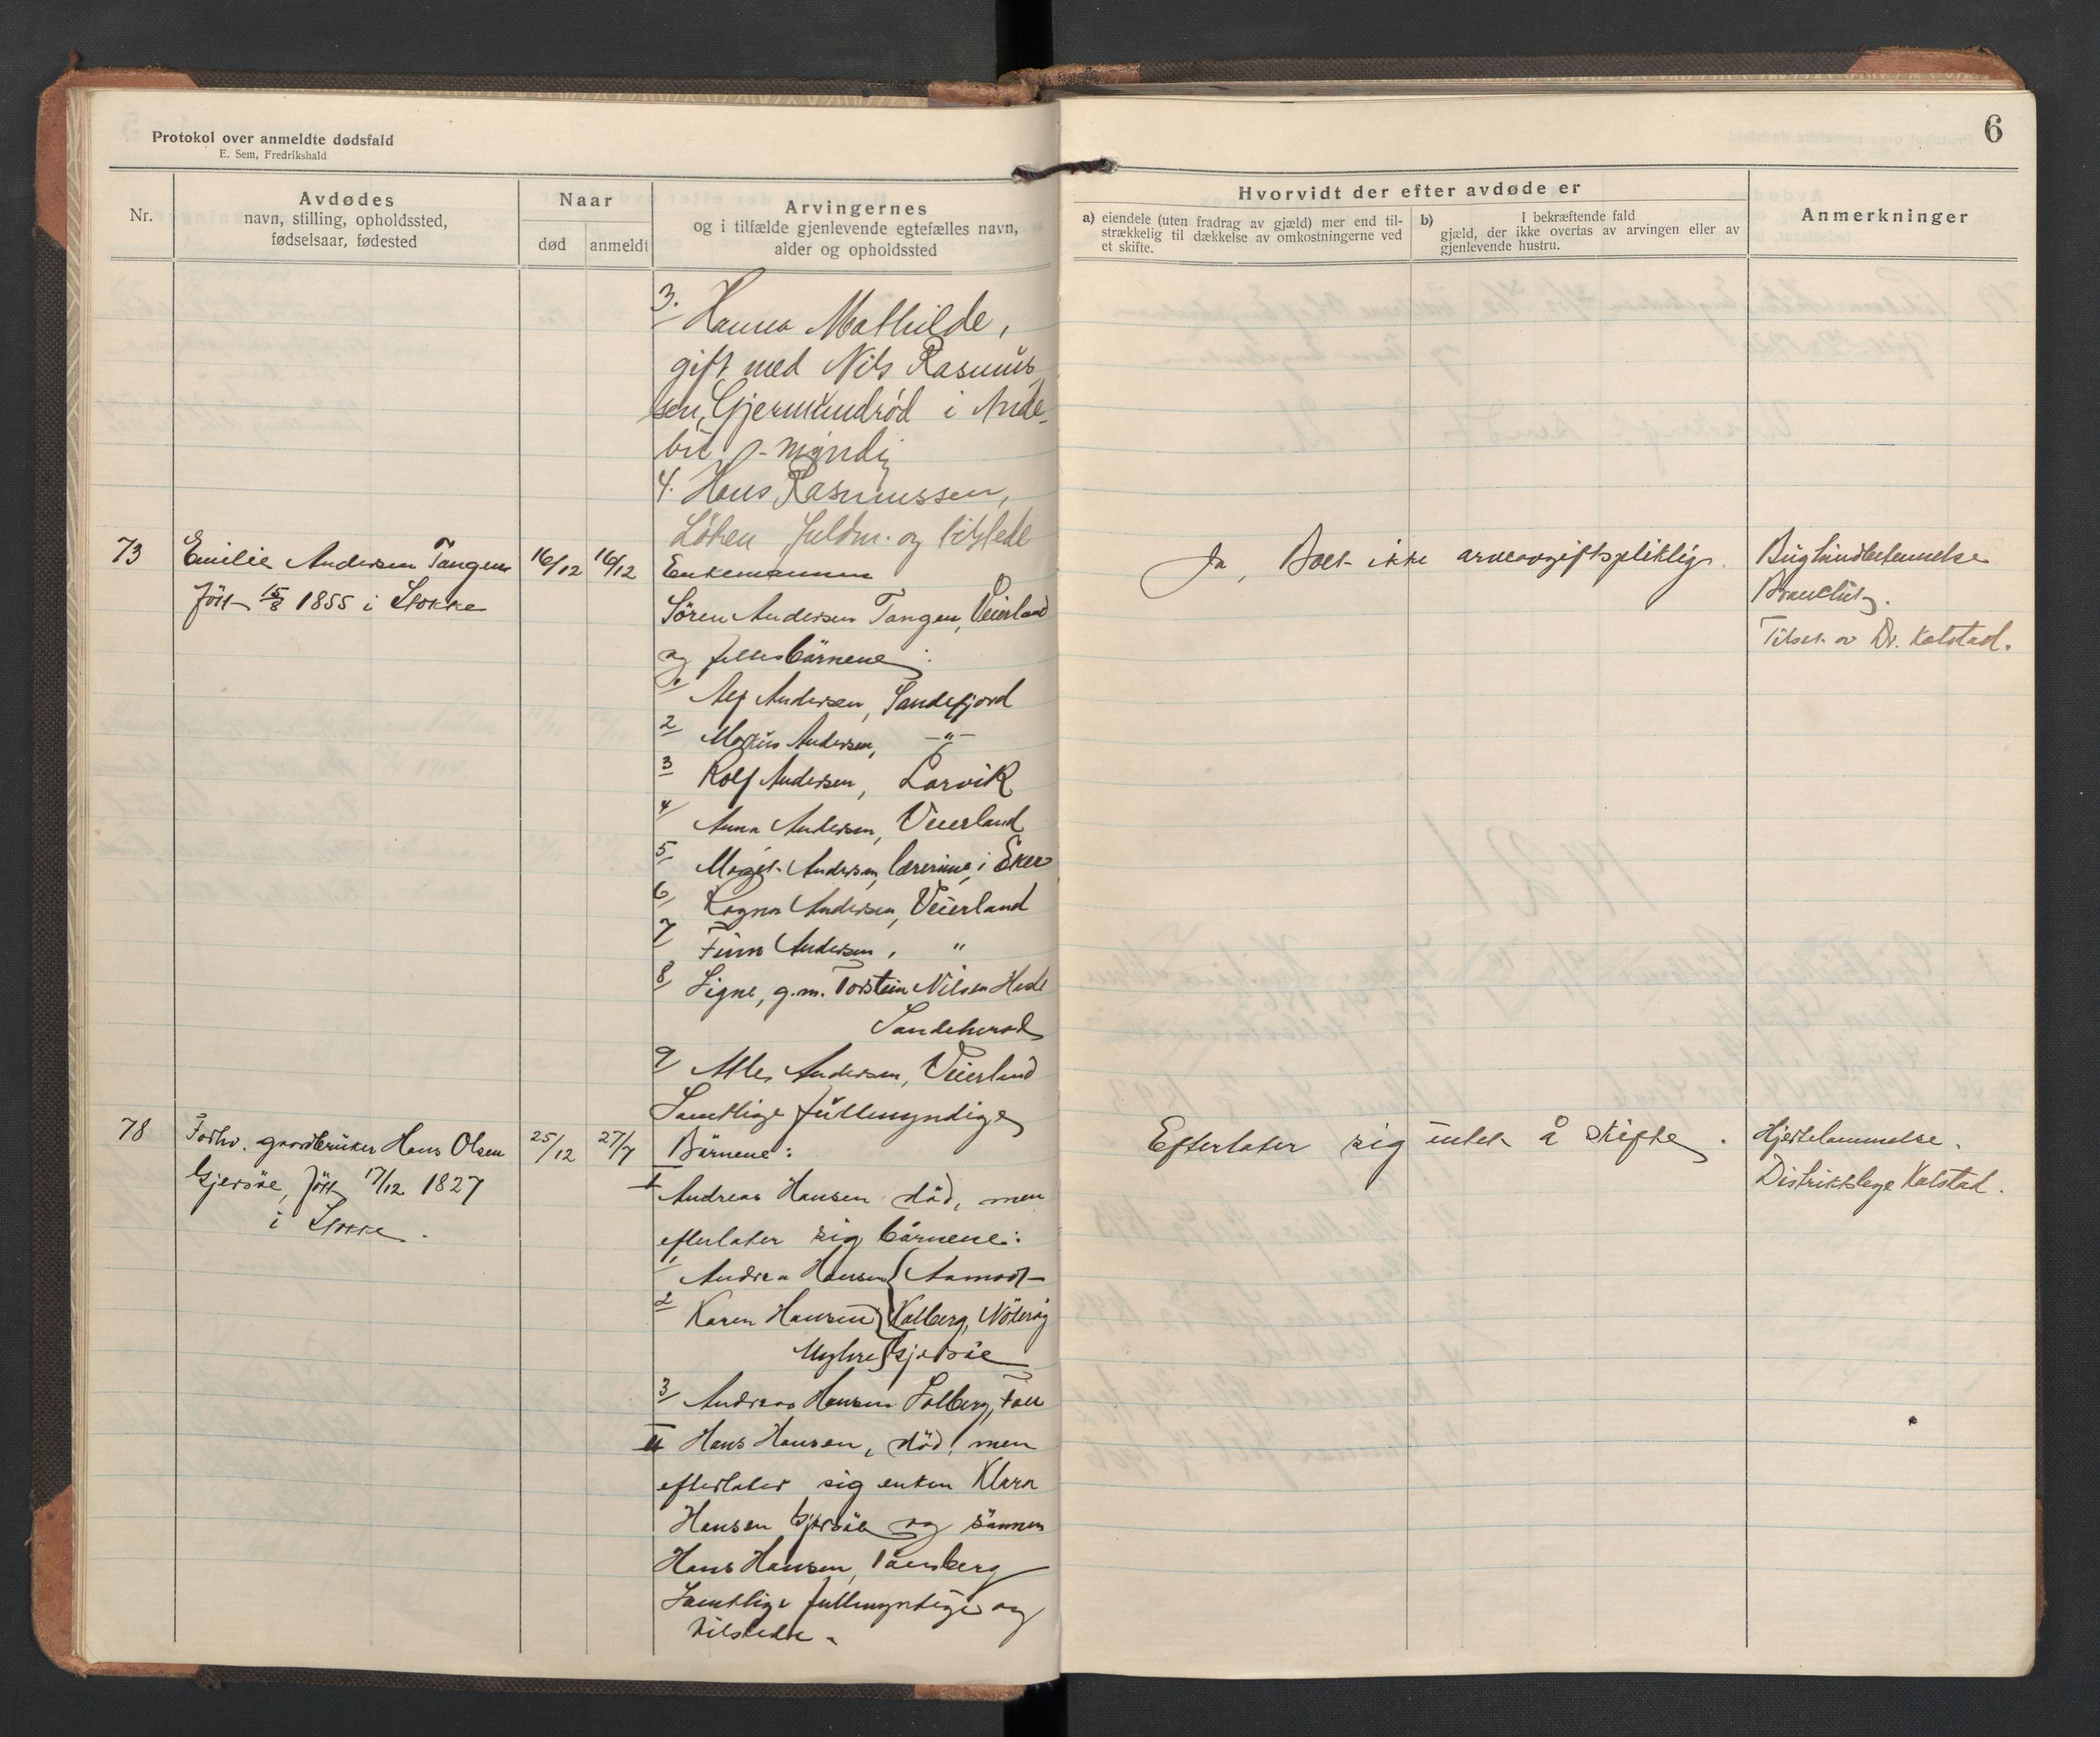 Protokol over anmeldte dødsfald
E. Sem, Fredrikshald
6
Nr.
Avdødes
navn, stilling, opholdssted,
fødselsaar, fødested
Naar
død
anmeldt
Arvingernes
og i tilfælde gjenlevende egtefælles navn,
alder og opholdssted
Hvorvidt der efter avdøde er
a) eiendele (uten fradrag av gjæld) mer end til-
strækkelig til dækkelse av omkostningerne ved
et skifte.
b) I bekræftende fald
gjæld, der ikke overtas av arvingen eller av
gjenlevende hustru.
Anmerkninger
3. Hanna Mathilde,
gift med Nils Rasmus
sen, Gjermundrød i Ande-
bu - myndig
4. Hans Rasmussen,
Løken fuldm. og tilstede
73
Emilie Andersen Tangen
født 15/8 1855 i Stokke
16/12
16/12
Enkemannen
Sören Andersen Tangen, Veierland
og fellesbörnene:
1 Alf Andersen, Sandefjord
2 Markus Andersen, -"-
3 Rolf Andersen, Larvik
4 Anna Andersen, Veierland
5 Margit Andersen, lærerinne, i Eker
6 Ragna Andersen, Veierland
7 Finn Andersen, "
8 Signe, g.m. Torstein Nilsen
Sandeherad
9 Andersen, Veierland
Samtlige fullmyndige
Ja, Boet ikke arveavgiftspliktig.
Bughindbetennelse
Tilset. av Dr. Kalstad.
78
Forhv. gaardbruker Hans Olsen
Gjersöe, født 17/12 1827
i Stokke.
25/12
27/7
Börnene:
I
Andreas Hansen död, men
efterlater sig börnene:
1 Andrea Hansen Aamodt
2 Karen Hansen Kalberg, Nöteröy
Myhre Gjersöe
3 Andreas Hansen Solberg,
II Hans Hansen, död, men
efterlater sig enken Klara
Hansen Gjersöe og sönnen
Hans Hansen, Tönsberg
Samtlige fullmyndige og
tilstede.
Efterlater sig intet å skifte.
Hjertelammelse.
Distriktslege Kalstad.